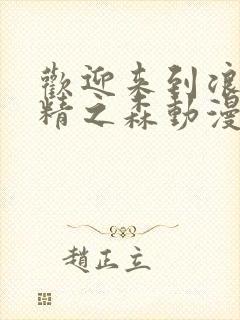 歡迎来到浪
精之森動漫
趙正立